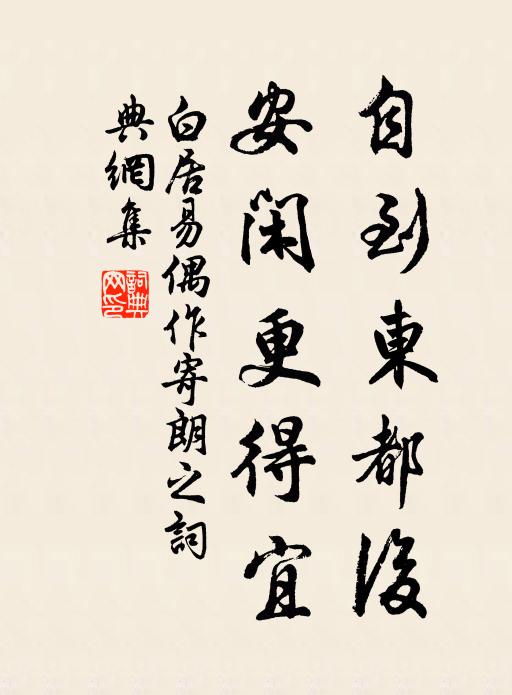 自到東都後
安閑更得宜
白居易偶作寄朗之詞
典網集
詞典
网印